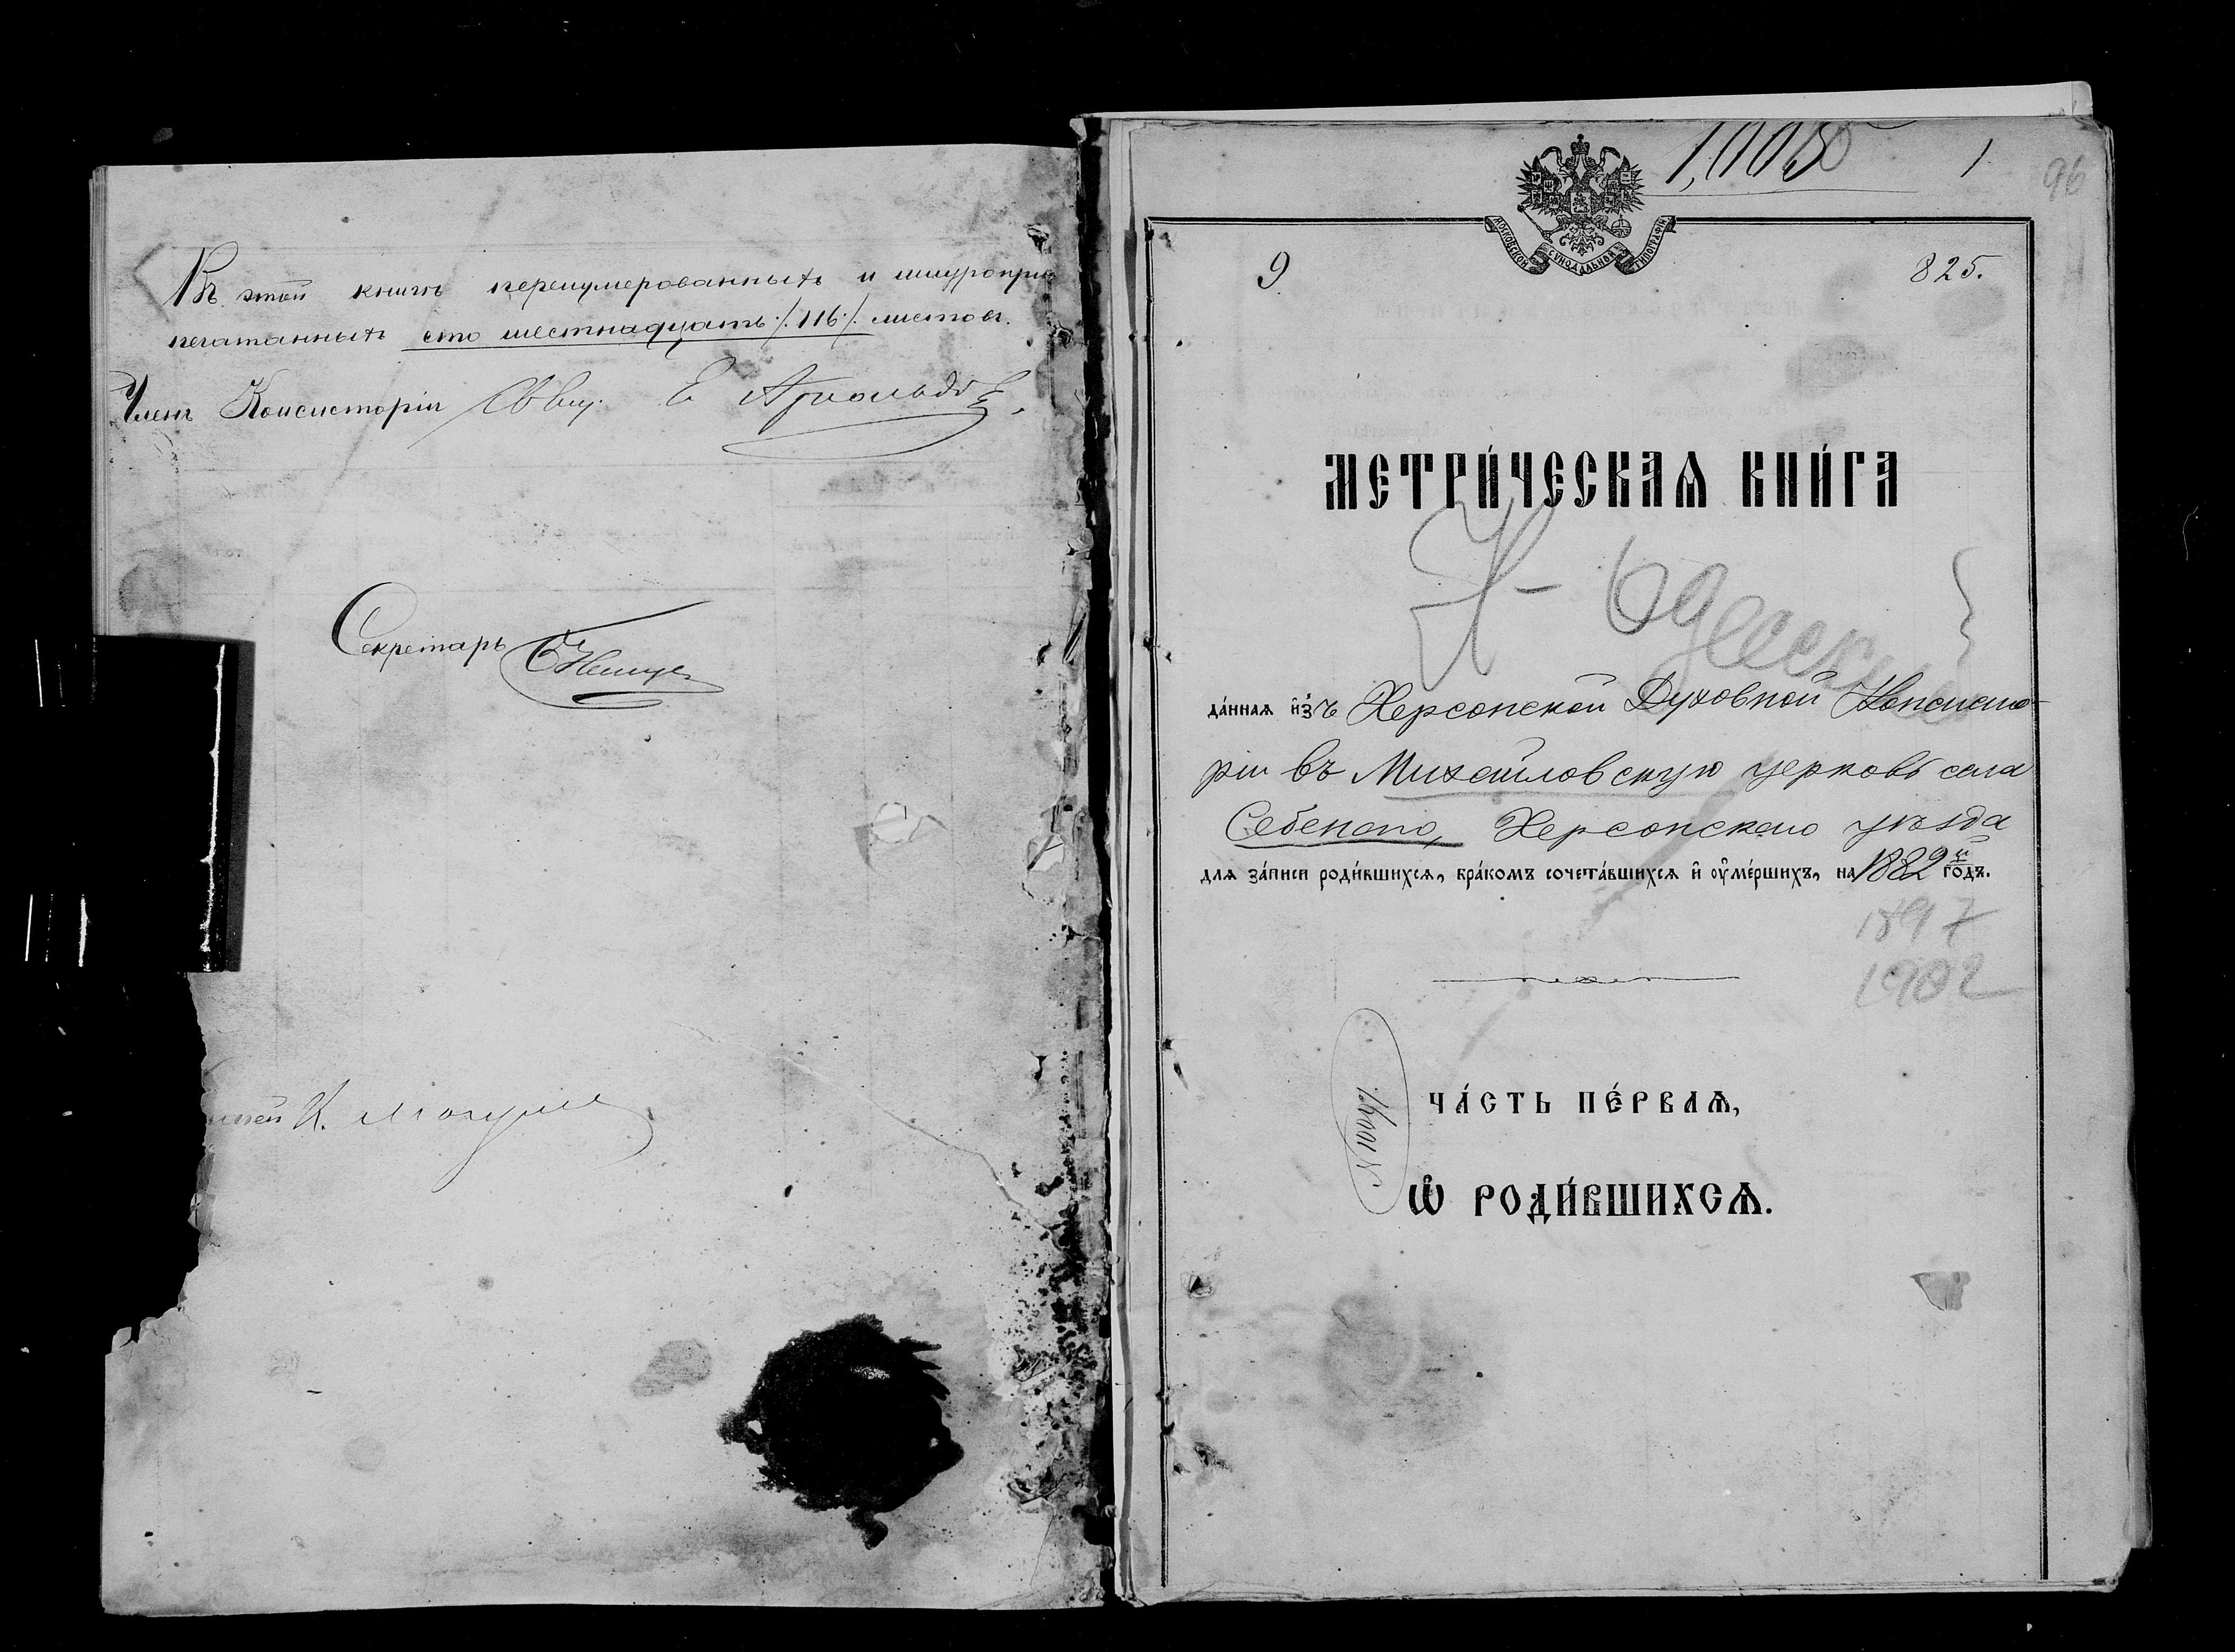 Въ этой книгѣ перенумерованныхъ и шнуропри
печатанныхъ сто шестнадцать ./.116./. листовъ.
Членъ Консисторіи Свящ. Арнольдовъ
Секретарь
К.
1,005
1
96
МОСКОВСКОЙ СѴНОДАЛЬНОЙ ТИПОГРАФІИ
9
825.
МЕТРИ́ЧЕСКАѦ КНИ́ГА
да́ннаѧ и҆зъ Херсонской Духовной Консисто-
ріи въ Михайловскую церковь села
Себенаго, Херсонскаго уѣзда
длѧ за́писи роди́вшихсѧ, бра́комъ сочета́вшихсѧ и҆ ᲂу҆ме́ршихъ, на 1882й го́дъ.
1897
1902
ЧА́СТЬ ПЕ́РВАѦ,
Ѡ҆ РОДИ́ВШИХСѦ.